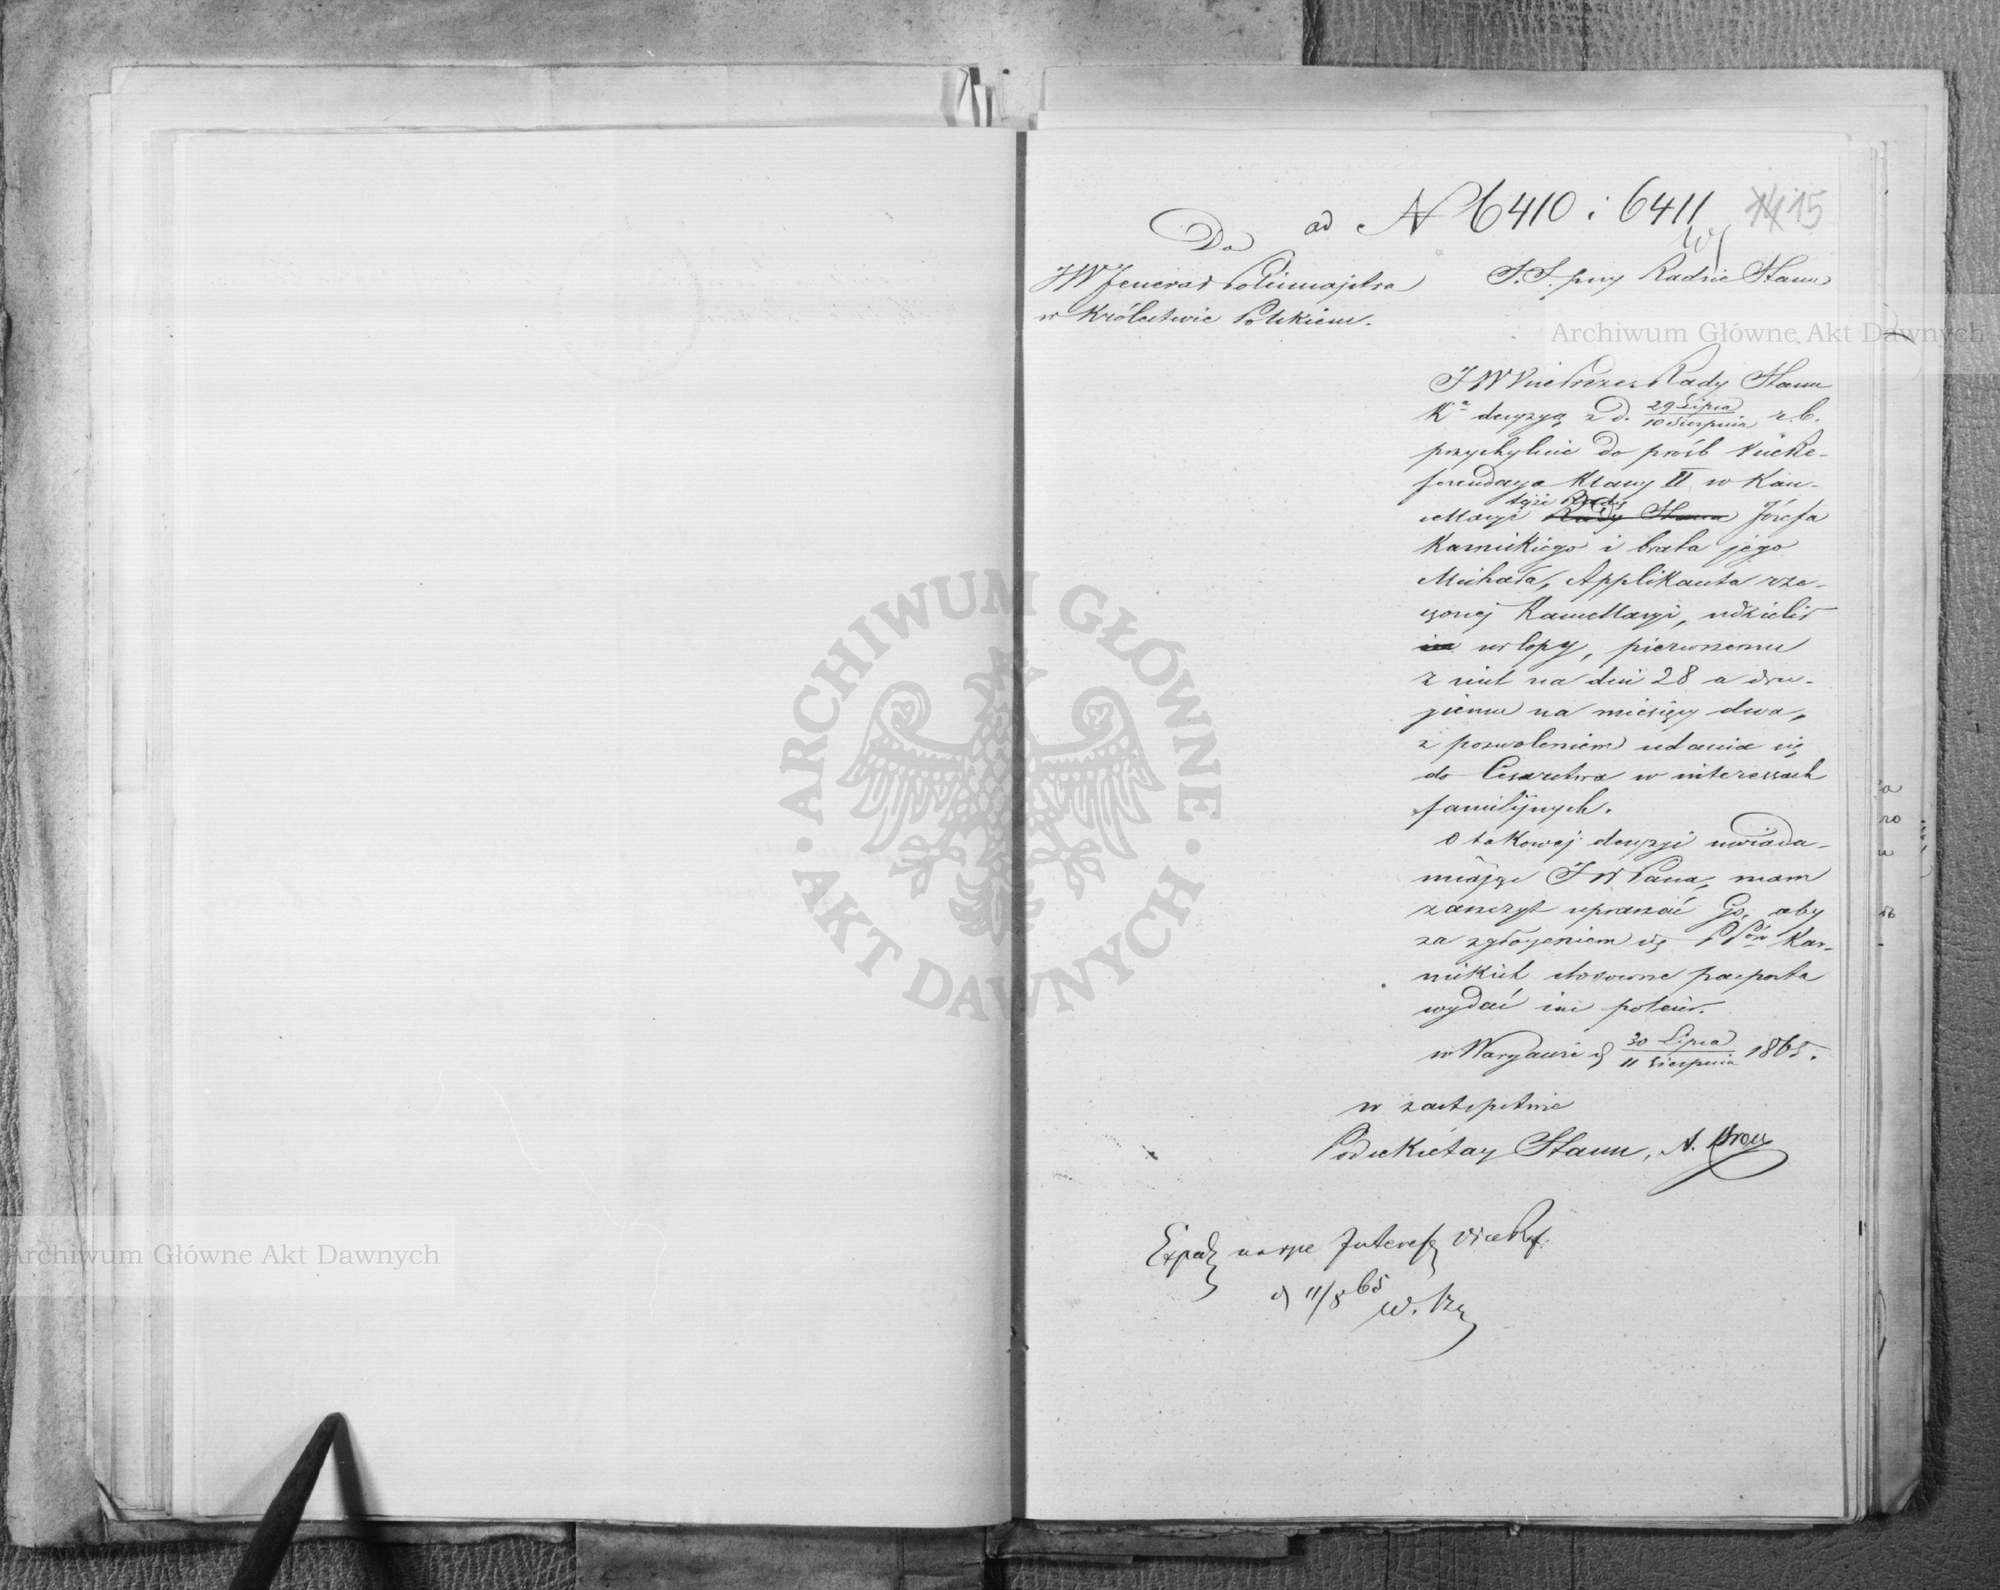 ad N 6410 i 6411
15
Do
JW Jenerał Policmajstra
w Królestwie Polskiem.
S.S. przy Radzie Stanu
Archiwum Główne Akt Dawnych
JW Vice Prezes Rady Stanu
Kª decyzyą z d. 29 Lipca / 10 Sierpnia r.b.
przychylnie do prośb ViceRe-
ferendarza Klassy II w Kan-
tejże Rady
cellaryi Rady Stanu Józefa
Karnickiego i brata jego
Michała, Applikanta rze-
czonej Kancellaryi, udzielił
im urlopy, pierwszemu
z nich na dni 28 a dru-
giemu na miesięcy dwa,
z pozwoleniem udania się
do Cesarstwa w interessach
familijnych.
O takowej decyzyi uwiada-
miając JW Pana, mam
zaszczyt upraszać Go, aby
za zgłoszeniem się PPów Kar-
nickich stosowne paszporta
wydać im polecił.
w Warszawie d 30 Lipca / 11 Sierpnia 1865.
w zastępstwie
Podsekretarz Stanu, A.
Exped na ręce Interess ViceRef.
d 11/8 65
ARCHIWUM GŁÓWNE AKT DAWNYCH
Archiwum Główne Akt Dawnych